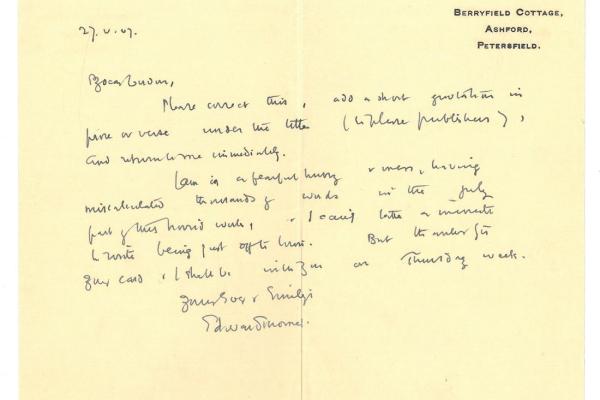 BERRYFIELD COTTAGE,
ASHFORD,
PETERSFIELD.
27. V. 07.
Please correct this, add a short quotation in
prose or verse under the title (to please publishers),
and return to me immediately.
I am in a fearful hurry & mess, having
miscalculated thousands of words in the July
part of this horrid work, & I can't take a minute
to write being just off to town. But
your card & I shall be with you on Thursday week.
Yours ever &
Edward Thomas.